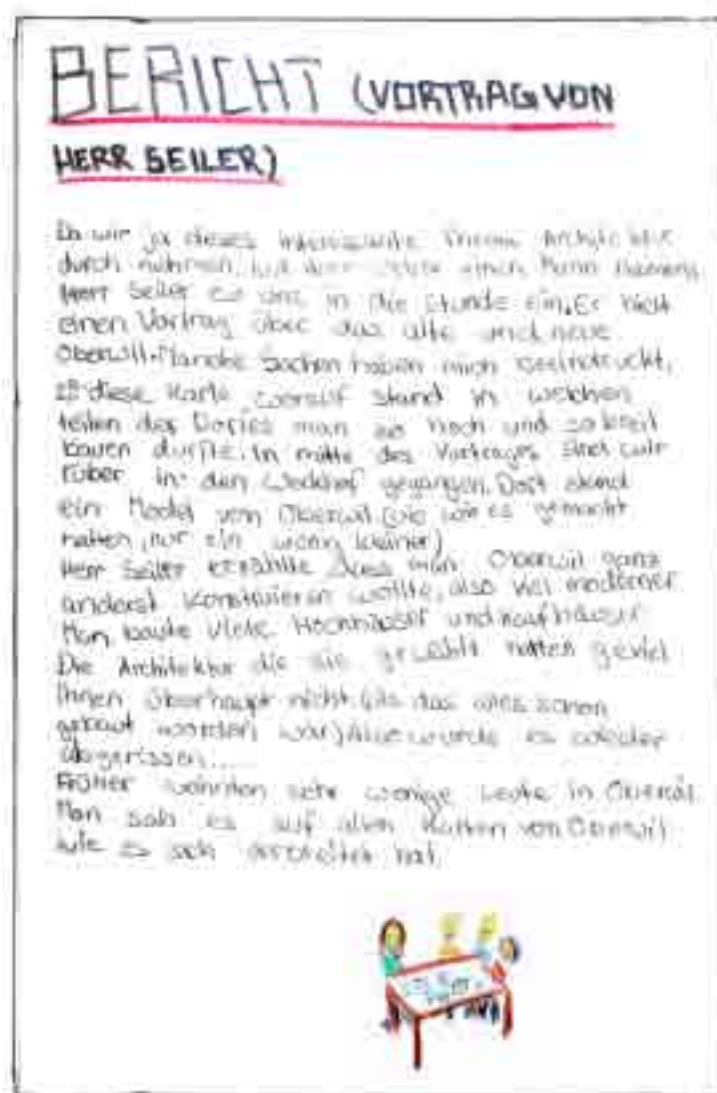 BERICHT (VORTRAG VON
HERR SEILER)
Da wir ja dieses interessante Thema Architektur
durch nahmen, einen Mann Namens
Herr Seiler zu uns in die Stunde ein. Er hielt
einen Vortrag über das alte und neue
Oberwil. Manche Sachen haben mich beeindruckt,
zB diese Karte, worauf stand in welchen
teilen des Dorfes man so hoch und so breit
bauen durfte. In mitte des Vortrages sind wir
rüber in den Werkhof gegangen. Dort stand
ein Model von Oberwil (wie wir es gemacht
hatten, nur ein wenn kleiner)
Herr Seiler erzählte dass man Oberwil ganz
anderst konstruieren wollte, also viel moderner.
Man baute viele Hochhäuser und kaufhäuser
Die Architektur die sie gewählt hatten geviel
Ihnen überhaupt nicht (als das alles schon
gebaut worden war) Also wurde es wieder
abgerissen...
Früher wohnten sehr wenige Leute in Oberwil.
Man sah es auf alten Karten von Oberwil
wie es sich hat